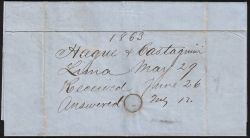 1863
Hague & Castagnini
Lima May 29
Received June 26
Answered July 12.